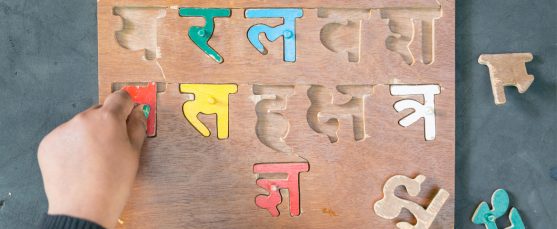 य र ल व श
स ह क्ष त्र
ज्ञ